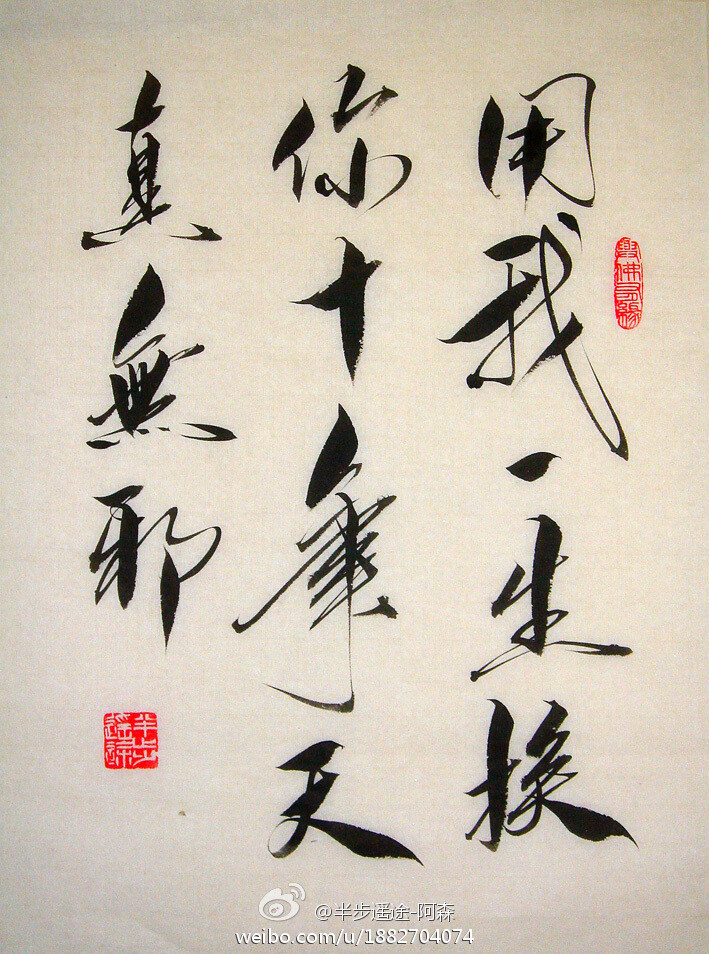 用我一生换
你十年天
真無邪
與佛有緣
半步遥途
@半步遥途-阿森
weibo.com/u/1882704074